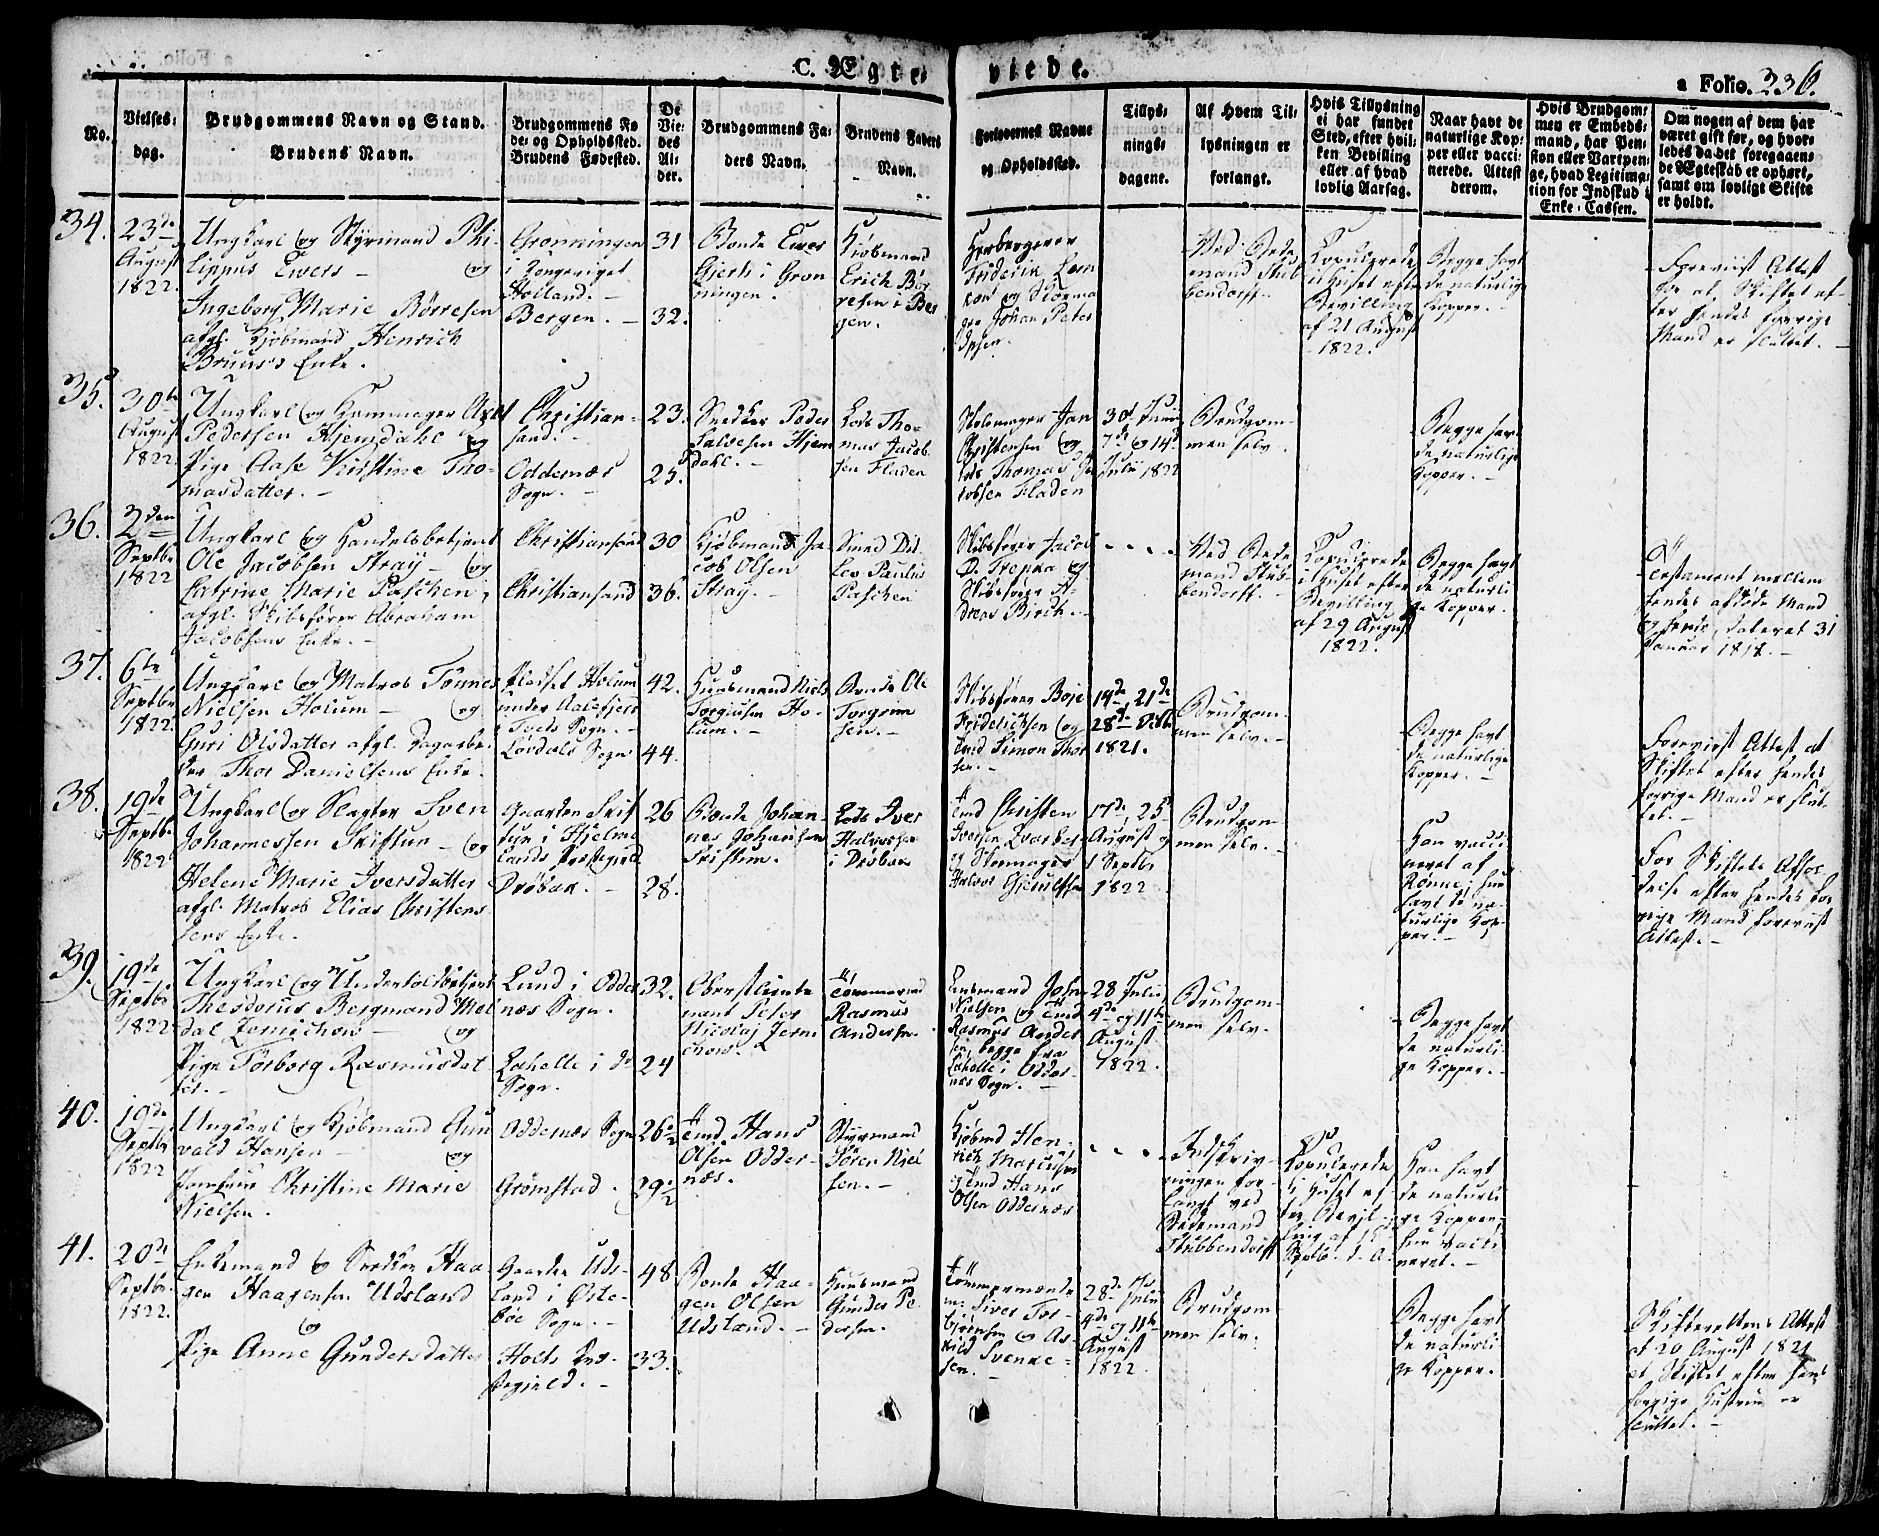 C. Ægte-
viede.
a Folio. 336.
No.
Vielses-
dag.
Brudgommens Navn og Stand.
Brudens Navn.
Brudgommens Fø
de- og Opholdssted.
Brudens Fødested.
De
Vie-
des
Al-
der.
Brudgommens Fa-
ders Navn.
Brudens Faders
Navn.
Forlovernes Navne
og Opholdssted.
Tillys-
nings-
dagene.
Af Hvem Til-
lysningen er
forlangt.
Hvis Tillysning
ei har fundet
Sted, efter hvil-
ken Bevilling
eller af hvad
lovlig Aarsag.
Naar havt de
naturlige Kop-
per eller vacci-
nerede. Attest
derom.
Hvis Brudgom-
men er Embeds-
mand, har Pen-
sion eller Vartpen-
ge, hvad Legitima-
tion for Indskud i
Enke-Cassen.
Om nogen af dem har
været gift før, og hvor-
ledes da det foregaaen-
de Ægteskab er ophørt,
samt om lovligt Skifte
er holdt.
34.
23de
August
1822.
Ungkarl og Styrmand Phi-
lippus Ewers – og
Ingeborg Marie Børresen
afgl. Kjøbmand Henrich
Bruuns Enke.
Grønningen
i Kongeriget
Holland. –
Bergen. –
31
32.
Bonde Ewer
Gjerh i Grøn
ningen.
Kjøbmand
Erich Bør
resen i Ber
gen.
Herbergerer
Friderik Lam
og Skoema
ger Johan Peter
Ved Bede
mand Stub
bendorff.
Copulerede
i Huset efter
Bevilling
af 21 August
1822.
Begge havt
de naturlige
Kopper. –
Foreviist Attest
for at Skiftet ef-
ter hendes forrige
Mand er sluttet. –
35.
30te
August
1822
Ungkarl og Kammager Axel
Pedersen Hjemdahl og
Pige Aase Kirstine Tho-
masdatter. –
Christian-
sand. –
Oddernæs
Sogn. –
23.
25.
Snedker Peder
Salvesen Hjem
dahl. –
Lods Tho-
mas Jacob
sen Fladen
Stolemager Jan
Christensen og
Lods Thomas Ja
cobsen Fladen
30t Junii
7de og 14de
Julii 1822
Brudgom-
men selv.
Begge havt
de naturlige
Kopper. –
36.
2den
Septbr
1822
Ungkarl og Handelsbetjent
Ole Jacobsen Stray – og
Catrine Marie Paschen,
afgl. Skibsfører Abraham
Jacobsens Enke. –
Christiansand
Christiansand
30
36.
Kjøbmand Ja-
cob Olsen
Stray. –
Smed Dit-
lev Paulus
Paschen
Skibsfører Jacob
D. Trepka og
Skibsfører A-
dreas Birch. –
Ved Bede
mand Stub-
bendorff. –
Copulerede
i Huset efter
Bevilling
af 29 August
1822.
Begge havt
de naturli
ge Kopper. –
Testament mellem
hendes afdøde Mand
og hende, dateret 31
Januar 1818. –
37.
6te
Septbr
1822.
Ungkarl og Matros Tønnes
Nielsen Holum – og
Guri Olsdatter afgl. Dagarbei
der Thor Danielsens Enke.
Pladset Holum
under Aalefjær
i Tveds Sogn. –
Løvdals Sogn
42.
44.
Huusmand Niels
Torgiusen Ho-
lum. –
Bonde Ole
Torgrim
sen. –
Skibsfører Boje
Frideriksen og
Tmd Simon Thor
sen. –
14de, 21de
28de Octb.
1821.
Brudgom-
men selv. –
Begge havt
de naturlige
Kopper. –
Foreviist Attest, at
Skiftet efter hendes
forrige Mand er slut-
tet. –
38.
19de
Septbr
1822
Ungkarl og Slagter Sven
Johannessen Skiftun – og
Helene Marie Iversdatter
afgl. Matros Elias Christen-
sens Enke.
Gaarden Skif
tun i Hjelme
lands Præstegield
Drøbak. –
26
28.
Bonde Johan-
nes Johansen
Skiftun.
Lods Iver
Halvorsen
i Drøbak
Tmd Christen
Iversen Kvarberg
og Steenmager
Halvor Gjerulfsen
17de, 25de
August og
1 Septbr
1822
Brudgom
men selv. –
Han vacci
neret af
Rønne; hun
havt de na-
turlige Kop-
per. –
For Skiftets Afhol
delse efter hendes for
rige Mand foreviist
Attest. –
39.
19de
Septbr
1822
Ungkarl og Undertoldbetjent
Theodorus Bergmand Mel
dal Zernichow – og
Pige Torborg Rasmusdat
ter. –
Lund i Odder
næs Sogn.
Lahelle i do
Sogn.
32.
24
Oberstlieute
nant Peter
Nicolaj Zerni
chow.
Tømmermd
Rasmus
Andersen.
Enkemand John
Nielsen og Tmd
Rasmus Ander
sen, begge fra
Lahelle i Odder
næs Sogn. –
28 Julii
4de og 11te
August
1822.
Brudgom-
men selv. –
Begge havt
de naturli-
ge Kopper. –
40.
19de
Septbr
1822
Ungkarl og Kjøbmand Gun
vald Hansen – og
Jomfrue Christine Marie
Nielsen.
Oddernæs Sogn
Grømstad.
26½
29½
Tmd Hans
Olsen Odder-
næs.
Styrmand
Søren Niel
sen. –
Kjøbmd Hen-
rich Mathisen
og Tmd Hans
Olsen Oddernæs
Indskriv-
ningen for-
langt ved
Bedemand
Stubbendorff
Copulerede
i Huset ef
ter Bevil-
ling af
Septb. d. A.
Han havt
de naturli
ge Kopper,
hun vacci
neret. –
41.
20de
Septbr.
1822.
Enkemand og Snedker Haa
gen Haagensen Udsland
og
Pige Anne Gundersdatter
Gaarden Uds-
land i Øste-
bøe Sogn. –
Holts Præ-
stegield. –
48
33.
Bonde Haa-
gen Olsen
Udsland. –
Huusmand
Gunder Pe
dersen.
Tømmermænde
ne Siver Tor-
bjørnsen og As-
kild Svenke-
sen. –
28de Julii
4de og 11te
August
1822.
Brudgom
men selv.
Begge havt
de naturli
ge Kopper. –
Skifterettens Attest
af 20 August 1821
at Skiftet efter hans
forrige Hustrue er
sluttet. –